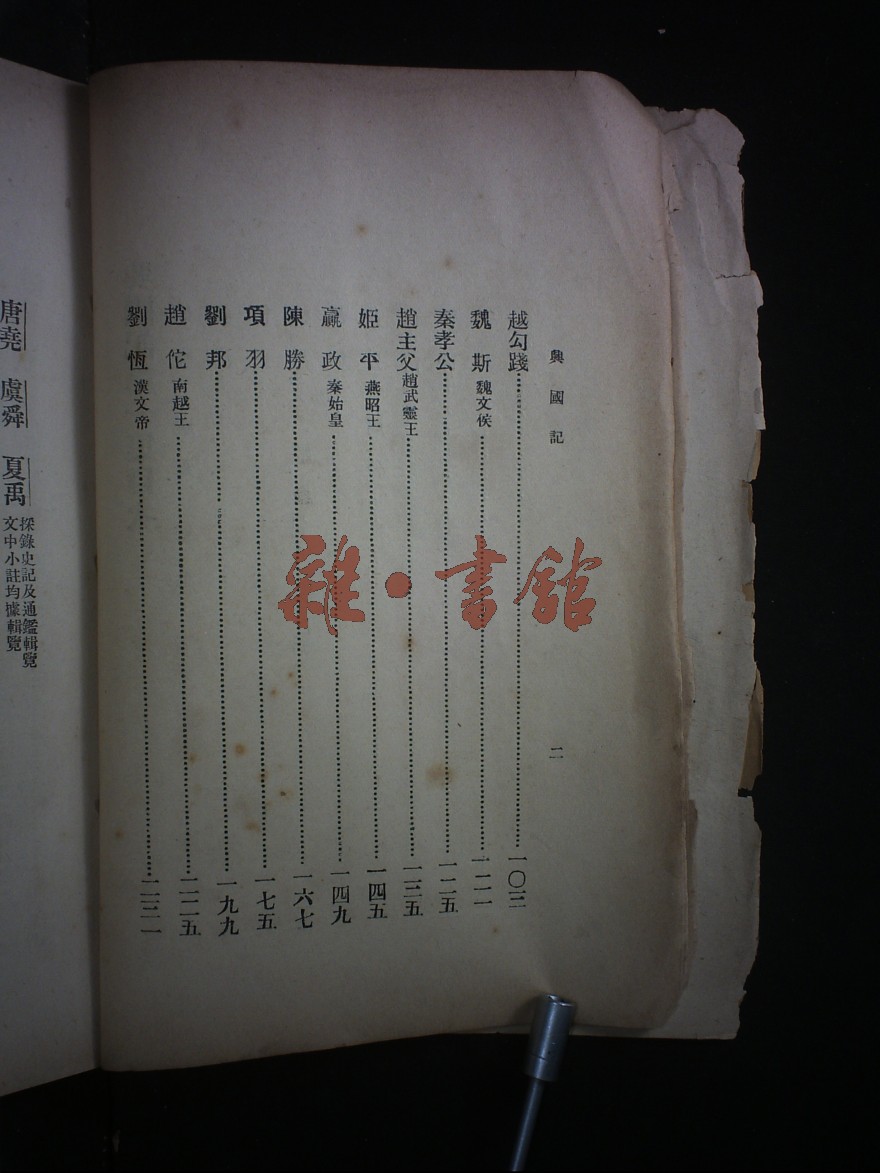 興國記 二
越勾踐 一〇三
魏斯 魏文侯 一二一
秦孝公 一二五
趙主父 趙武靈王 一三五
姬平 燕昭王 一四五
嬴政 秦始皇 一四九
陳勝 一六七
項羽 一七五
劉邦 一九九
趙佗 南越王 二二五
劉恆 漢文帝 二三一
唐堯 虞舜 夏禹
採錄史記及通鑑輯覽
文中小註均據輯覽
雜·書館